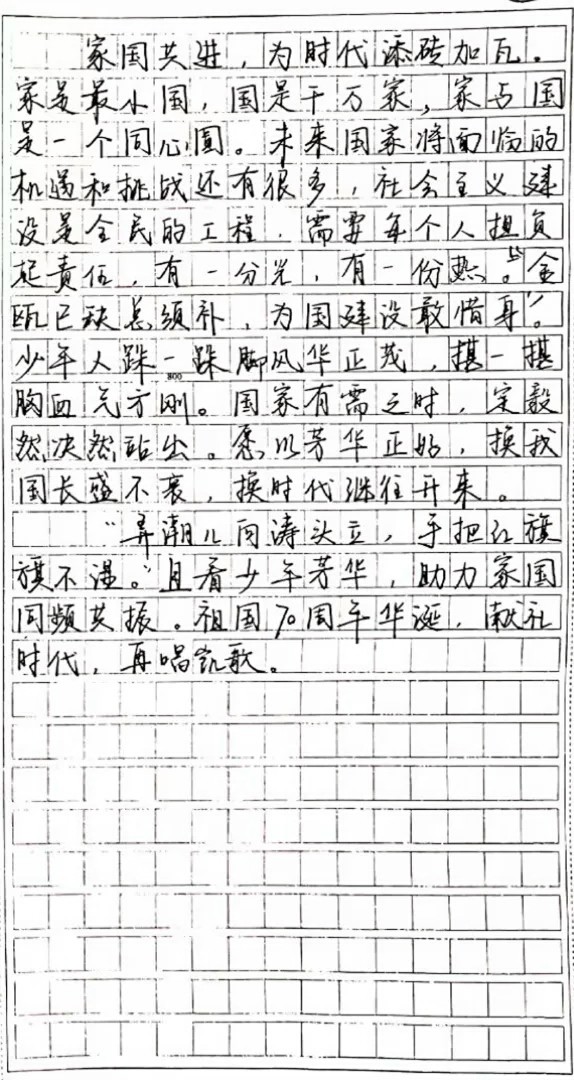 家国共进，为时代添砖加瓦。
家是最小国，国是千万家，家与国
是一个同心圆。未来国家将面临的
机遇和挑战还有很多，社会主义建
设是全民的工程，需要每个人担负
起责任，有一分光，有一份热。“金
瓯已缺总须补，为国建设敢惜身”。
少年人跺一跺脚风华正茂，揕一揕
800
胸血气方刚。国家有需之时，定毅
然决然站出。愿以芳华正好，换我
国长盛不衰，换时代继往开来。
“弄潮儿向涛头立，手把红旗
旗不湿。”且看少年芳华，助力家国
同频共振。祖国70周年华诞，献礼
时代，再唱凯歌。